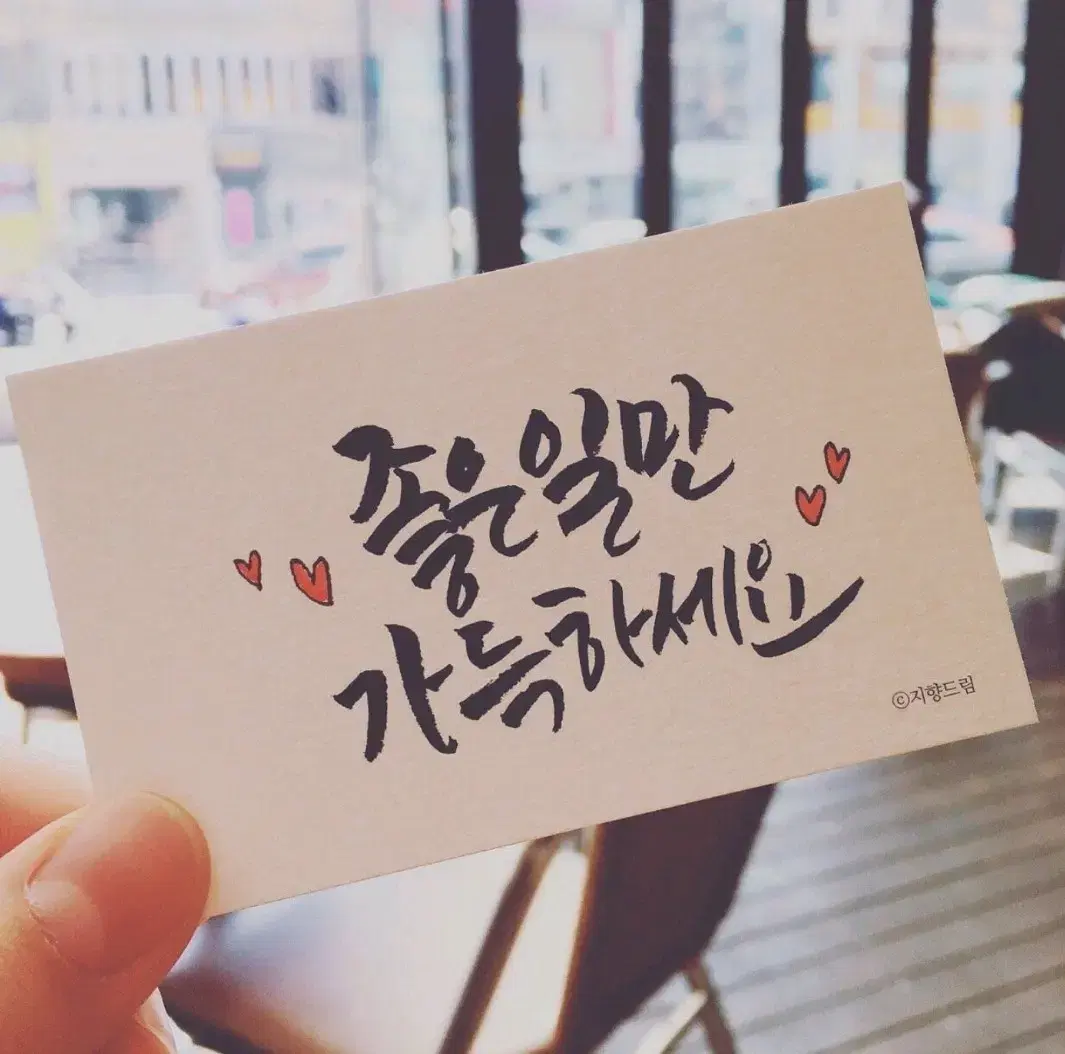 좋은일만
가득하세요
ⓒ지향드림